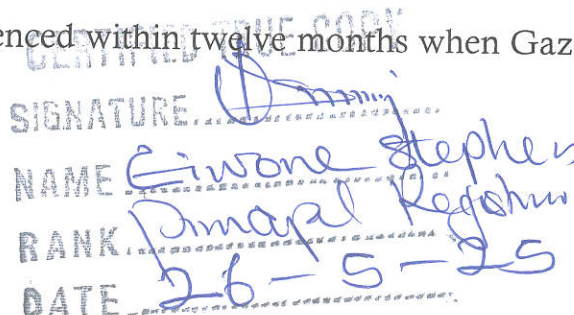 enced within twelve months when Gaz
CERTIFIED TRUE COPY
SIGNATURE
NAME Eiwone Stephen
RANK Principal Registrar
DATE 26-5-25